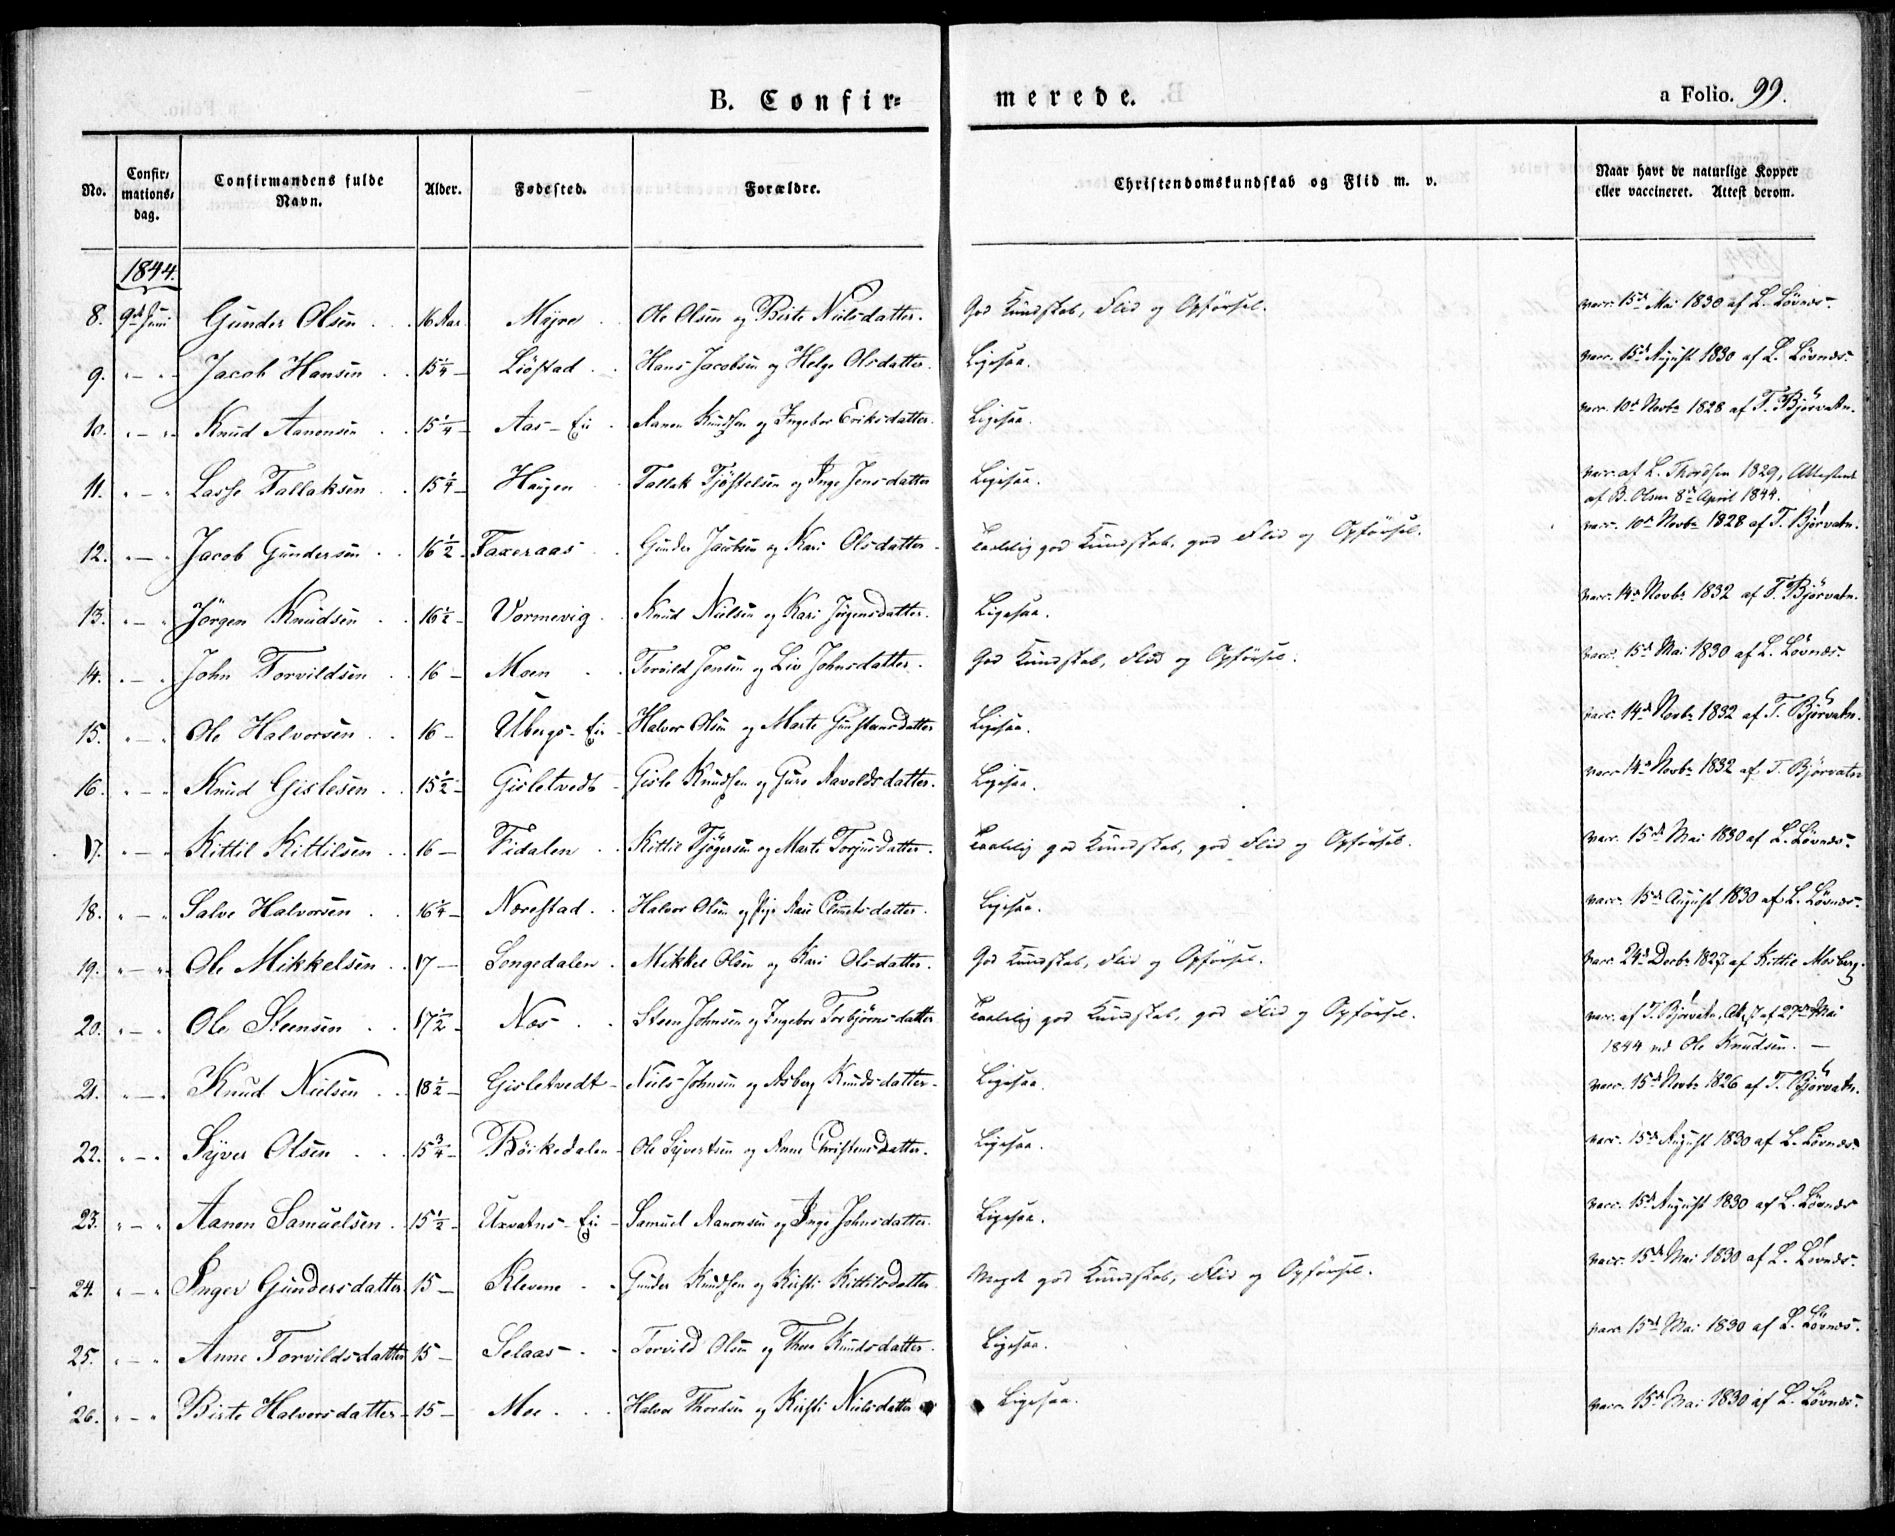 B. Confir=
merede.
a Folio. 99.
No. Confirmationsdag. Confirmandens fulde Navn. Alder. Fødested. Forældre. Christendomskundskab og Flid m. v. Naar havt de naturlige Kopper eller vaccineret. Attest derom.
1844.
8. 9de Juni Gunder Olsen 16 Aar Myre Ole Olsen og Birte Nielsdatter. God Kundskab, Flid og Opførsel. vacc. 15de Mai 1830 af L. Løvnæs.
9. " — " Jacob Hansen 15 1/4 — Liøstad Hans Jacobsen og Helge Olsdatter. Ligesaa. vacc. 15de August 1830 af L. Løvnæs.
10. " — " Knud Aanonsen 15 1/4 — Aas - Ei Aanon Knudsen og Ingebor Eriksdatter. Ligesaa. vacc. 10de Novbr 1828 af T. Bjørvatn.
11. " — " Lasse Tallaksen 15 1/4 — Haugen Tallak Tjøstelsen og Inge Jensdatter Ligesaa. vacc. af L. Thordsen 1829, Attesteret
af B. Olsen 8de April 1844.
12. " — " Jacob Gundersen 16 1/2 — Faxeraas Gunder Jacobsen og Kari Olsdatter Taalelig god Kundskab, god Flid og Opførsel. vacc. 10de Novbr 1828 af T. Bjørvatn.
13. " — " Jørgen Knudsen 16 1/2 — Vormevig Knud Nielsen og Kari Jørgensdatter. Ligesaa. vacc. 14de Novbr 1832 af T. Bjørvatn.
14. " — " John Torvildsen 16 — Moen Torvild Jensen og Liv Johnsdatter. God Kundskab, Flid og Opførsel. vacc. 15de Mai 1830 af L. Løvnæs.
15. " — " Ole Halvorsen 16 — Ubergs - Ei Halvor Olsen og Marte Gunstensdatter Ligesaa. vacc. 14de Novbr 1832 af T. Bjørvatn.
16. " — " Knud Gislesen 15 1/2 — Gisletvedt Gisle Knudsen og Guro Aavoldsdatter. Ligesaa. vacc. 14de Novbr 1832 af T. Bjørvatn
17. " — " Kittil Kittilsen 16 — Fidalen Kittil Tjøgersen og Marte Torjusdatter. Taalelig god Kundskab, god Flid og Opførsel. vacc. 15de Mai 1830 af L. Løvnæs.
18. " — " Salve Halvorsen 16 1/4 — Nærestad Halvor Olsen og Pige Kari Clemetsdatter. Ligesaa. vacc. 15de August 1830 af L. Løvnæs.
19. " — " Ole Mikkelsen 17 — Songedalen Mikkel Olsen og Kari Olsdatter. God Kundskab, Flid og Opførsel. vacc. 24de Decbr 1827 af Kittil Mosberg.
20. " — " Ole Steensen 17 1/2 — Næs Steen Johnsen og Ingebor Torbjørnsdatter Taalelig god Kundskab, god Flid og Opførsel. vacc. af T. Bjørvatn, Attest af 27de Mai
1844 ved Ole Knudsen. —
21. " — " Knud Nielsen 18 1/2 — Gisletvedt Niels Johnsen og Asberg Knudsdatter Ligesaa. vacc. 15de Novbr 1826 af T. Bjørvatn.
22. " — " Syver Olsen 15 3/4 — Bøikedalen Ole Syvertsen og Anne Christensdatter. Ligesaa. vacc. 15de August 1830 af L. Løvnæs
23. " — " Aanon Samuelsen 15 1/2 — Uxvatns - Ei Samuel Aanonsen og Inge Johnsdatter. Ligesaa. vacc. 15de August 1830 af L. Løvnæs
24. " — " Inger Gundersdatter 15 — Klevene Gunder Knudsen og Kirsti Kittilsdatter Meget god Kundskab, Flid og Opførsel. vacc. 15de Mai 1830 af L. Løvnæs.
25. " — " Anne Torvildsdatter 15 — Selaas Torvild Olsen og Thore Knudsdatter. Ligesaa. vacc. 15de Mai 1830 af L. Løvnæs.
26. " — " Birte Halvorsdatter 15 — Moe Halvor Thordsen og Kirsti Nielsdatter Ligesaa. vacc. 15de Mai 1830 af L. Løvnæs.